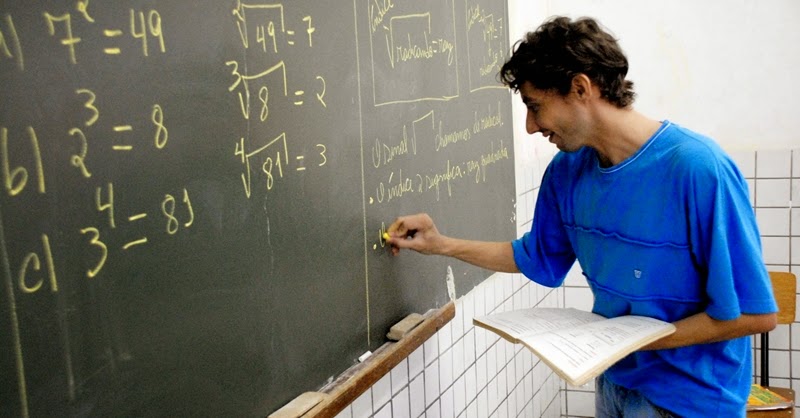 a) 7² = 49
²√49 = 7
b) 2³ = 8
³√8 = 2
c) 3⁴ = 81
⁴√81 = 3
índice
√radicando = raiz
O sinal √ chamamos de radical.
• O índice 2 significa: raiz quadrada